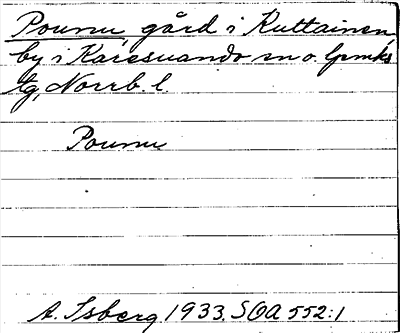 Pounu, gård i Kuttainen
by i Karesuando sn o. lpmks
tg, Norrb. l.
Pounu
A. Isberg 1933. SOA 552:1